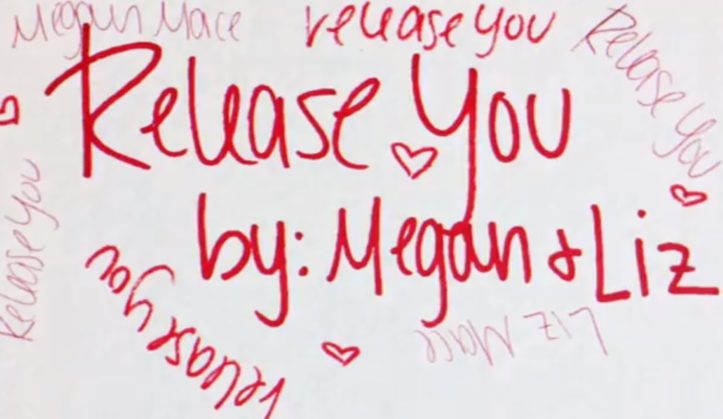 Megan Mace
release you
Release You
Release You
by: Megan & Liz
Release You
release you
Liz Mace